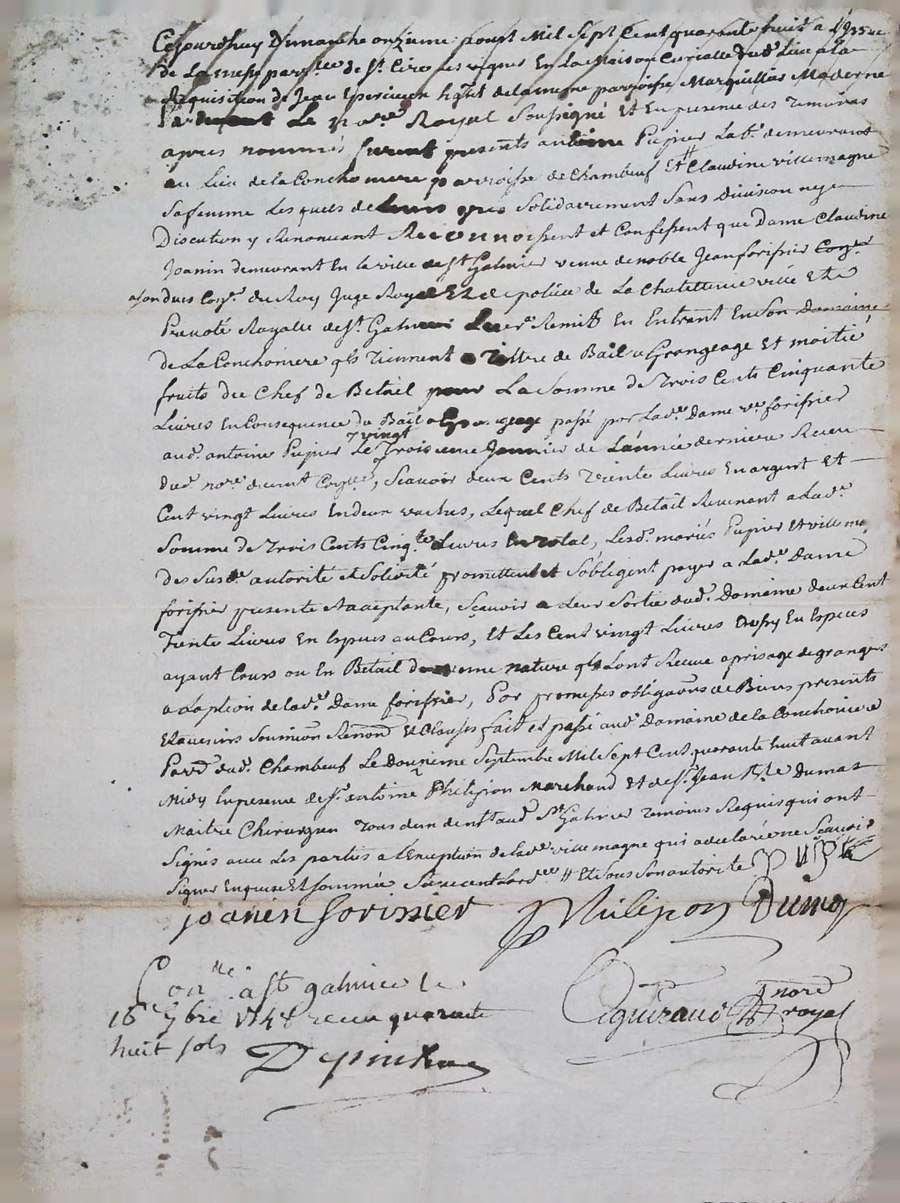 Cejourdhuy Dimanche onzieme aoust Mil Sept Cent quarante huit a L'issue
de La messe par.lle de St. Cire les vignes En La Maison Curialle dud. Lieu a La
Requisition de Jean Eperieux hab.t de la meme parroisse Marguillier Moderne
Le no.re Royal Soussigné Et En presence des Temoins
apres nommes furent presents antoine Pupier Lab.r demeurant
au Lieu de la Conchonniere parroisse de Chambeuf Et Claudine villemagne
Sa femme Lesquels de Leurs gres Solidairement Sans Division ny
Discution y Renonceant Reconnoissent et Confessent que Dame Claudine
Joanin demeurant En la ville de St Galmier veuve de noble Jean forissier Cons.er
du Roy Juge Royal Et de police de La Chatellenie ville Et
Prevoté Royalle de St. Galmier Leur Remit En Entrant En Son Domaine
de La Conchoniere qls Tiennent a Tiltre de Bail a Grangeage Et moitié
fruits du Chef de Betail pour La Somme de Trois Cents Cinquante
Livres En Consequence du Bail a Grangeage passé par Lad.e Dame v.e forissier
aud. antoine Pupier Le vingt Troisieme Janvier de L'année derniere Receu
dud. no.re , Scavoir deux Cents Trente Livres En argent Et
Cent vingt Livres En deux vaches, Lequel Chef de Betail Revenant a Lad.e
Somme de Trois Cents Cinq.te Livres En total, Lesd. mariés Pupier Et villema.
des Susd. autorité et Solidité promettent et S'obligent payer a Lad.e Dame
forissier presente et acceptante, Scavoir a Leur Sortie dud. Domaine deux Cent
Trente Livres En Especes au Cours, Et Les Cent vingt Livres En Especes
ayant Cours ou En Betail de meme nature qls Lont Receue a prisage de granges
a Loption de Lad.e Dame forissier, Par promesses obligaons de Biens presents
Et avenirs Soumiōn Renonc. Et Clauses fait et passé aud. Domaine de la Conchoniere
Parr.e dud. Chambeuf Le Douzieme Septembre Mil Sept Cent quarante huit avant
Midy En presence de Sr. antoine Philipon Marchand Et de Sr. Jean Dumas
Maitre Chirurgien Tous deux aud. St Galmier Temoins Requis qui ont
Signés avec Les parties a L'Exception de Lad.e villemagne qui a declaré ne Scavoir
Signer Enquise Et Sommée # Et de Son autorité Pupier
joanin forissier Philipon Dumas
Con.lle a St galmier le
16e 7bre 1748 receu quarante
huit sols
nore royal